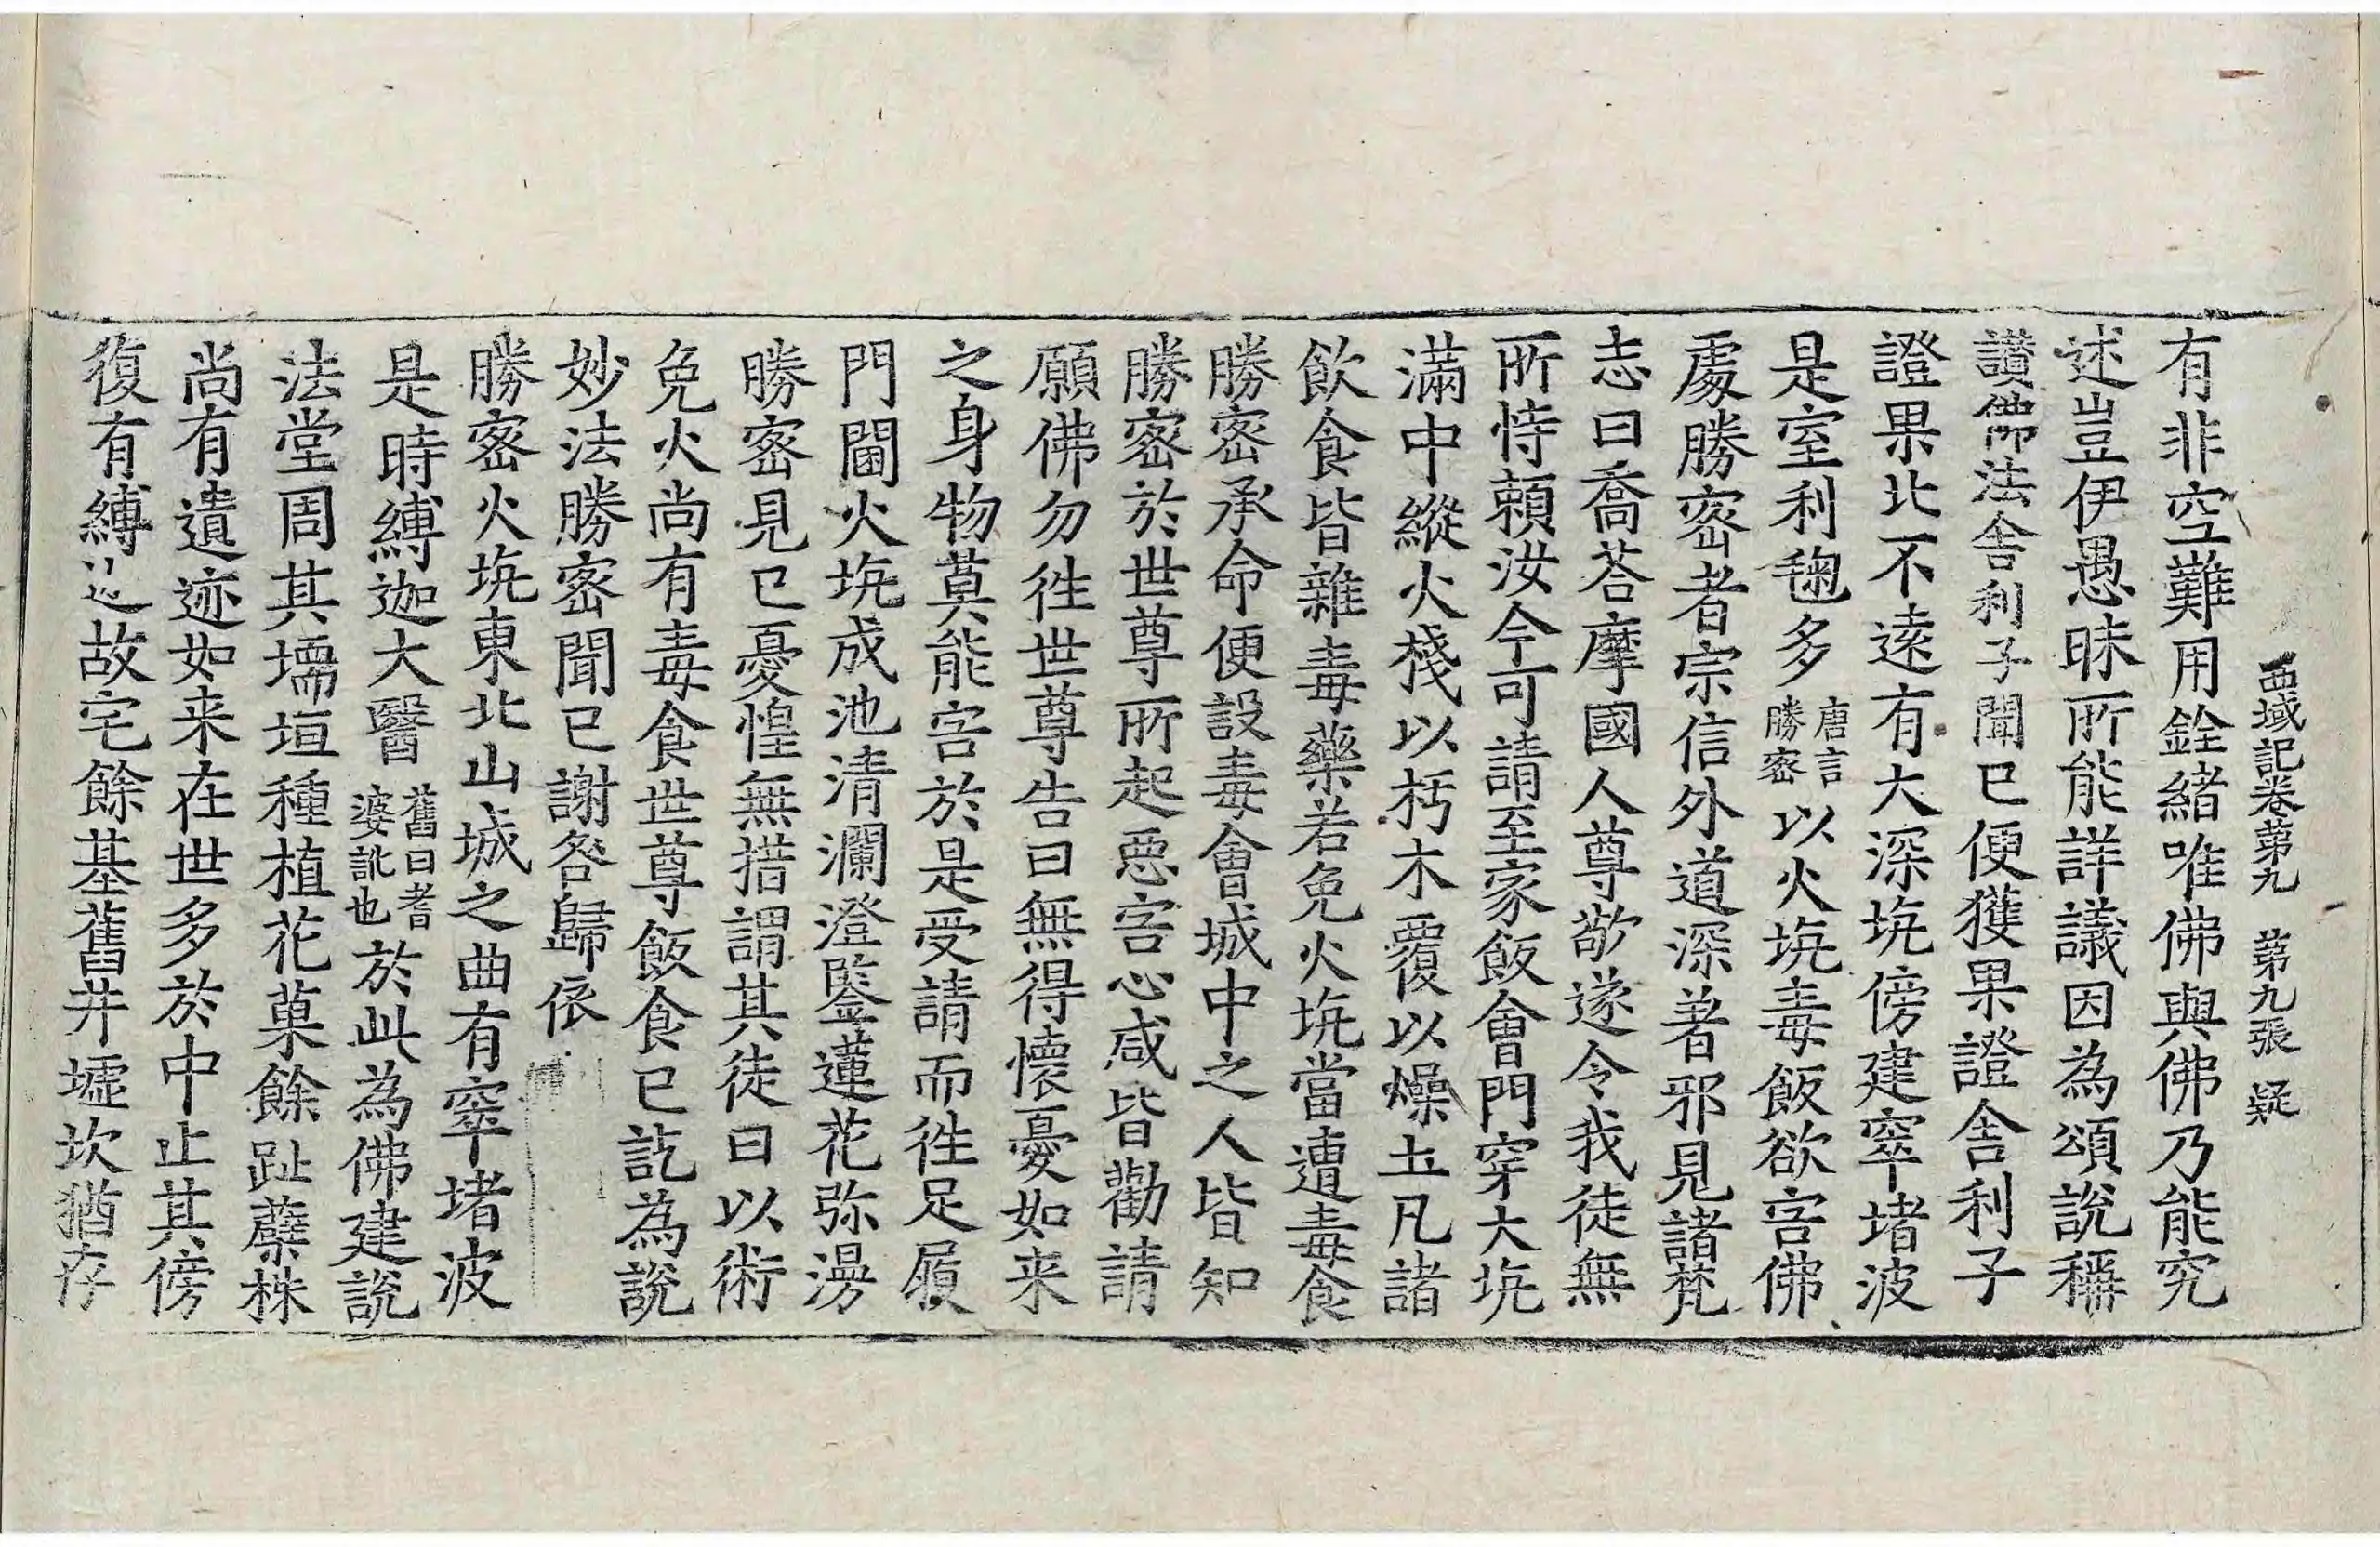 西域記卷第九 第九張 疑
有非空難用銓緒唯佛與佛乃能究
述豈伊愚昧所能詳議因為頌說稱
讃佛法舍利子聞已便獲果證舍利子
證果北不遠有大深坑傍建窣堵波
是室利毱多唐言勝密以火坑毒飯欲害佛
處勝密者宗信外道深著邪見諸梵
志曰喬荅摩國人尊敬遂令我徒無
所恃賴汝今可請至家飯會門穿大坑
滿中縱火棧以朽木覆以燥土凡諸
飲食皆雜毒藥若免火坑當遭毒食
勝密承命便設毒會城中之人皆知
勝密於世尊所起惡害心咸皆勸請
願佛勿往世尊告曰無得懷憂如来
之身物莫能害於是受請而往足履
門閫火坑成池清瀾澄鑒蓮花弥漫
勝密見已憂惶無措謂其徒曰以術
免火尚有毒食世尊飯食已訖為說
妙法勝密聞已謝咎歸依
勝密火坑東北山城之曲有窣堵波
是時縛迦大醫舊曰耆婆訛也於此為佛建說
法堂周其壖垣種植花菓餘趾蘖株
尚有遺迹如来在世多於中止其傍
復有縛迦故宅餘基舊井墟坎猶存